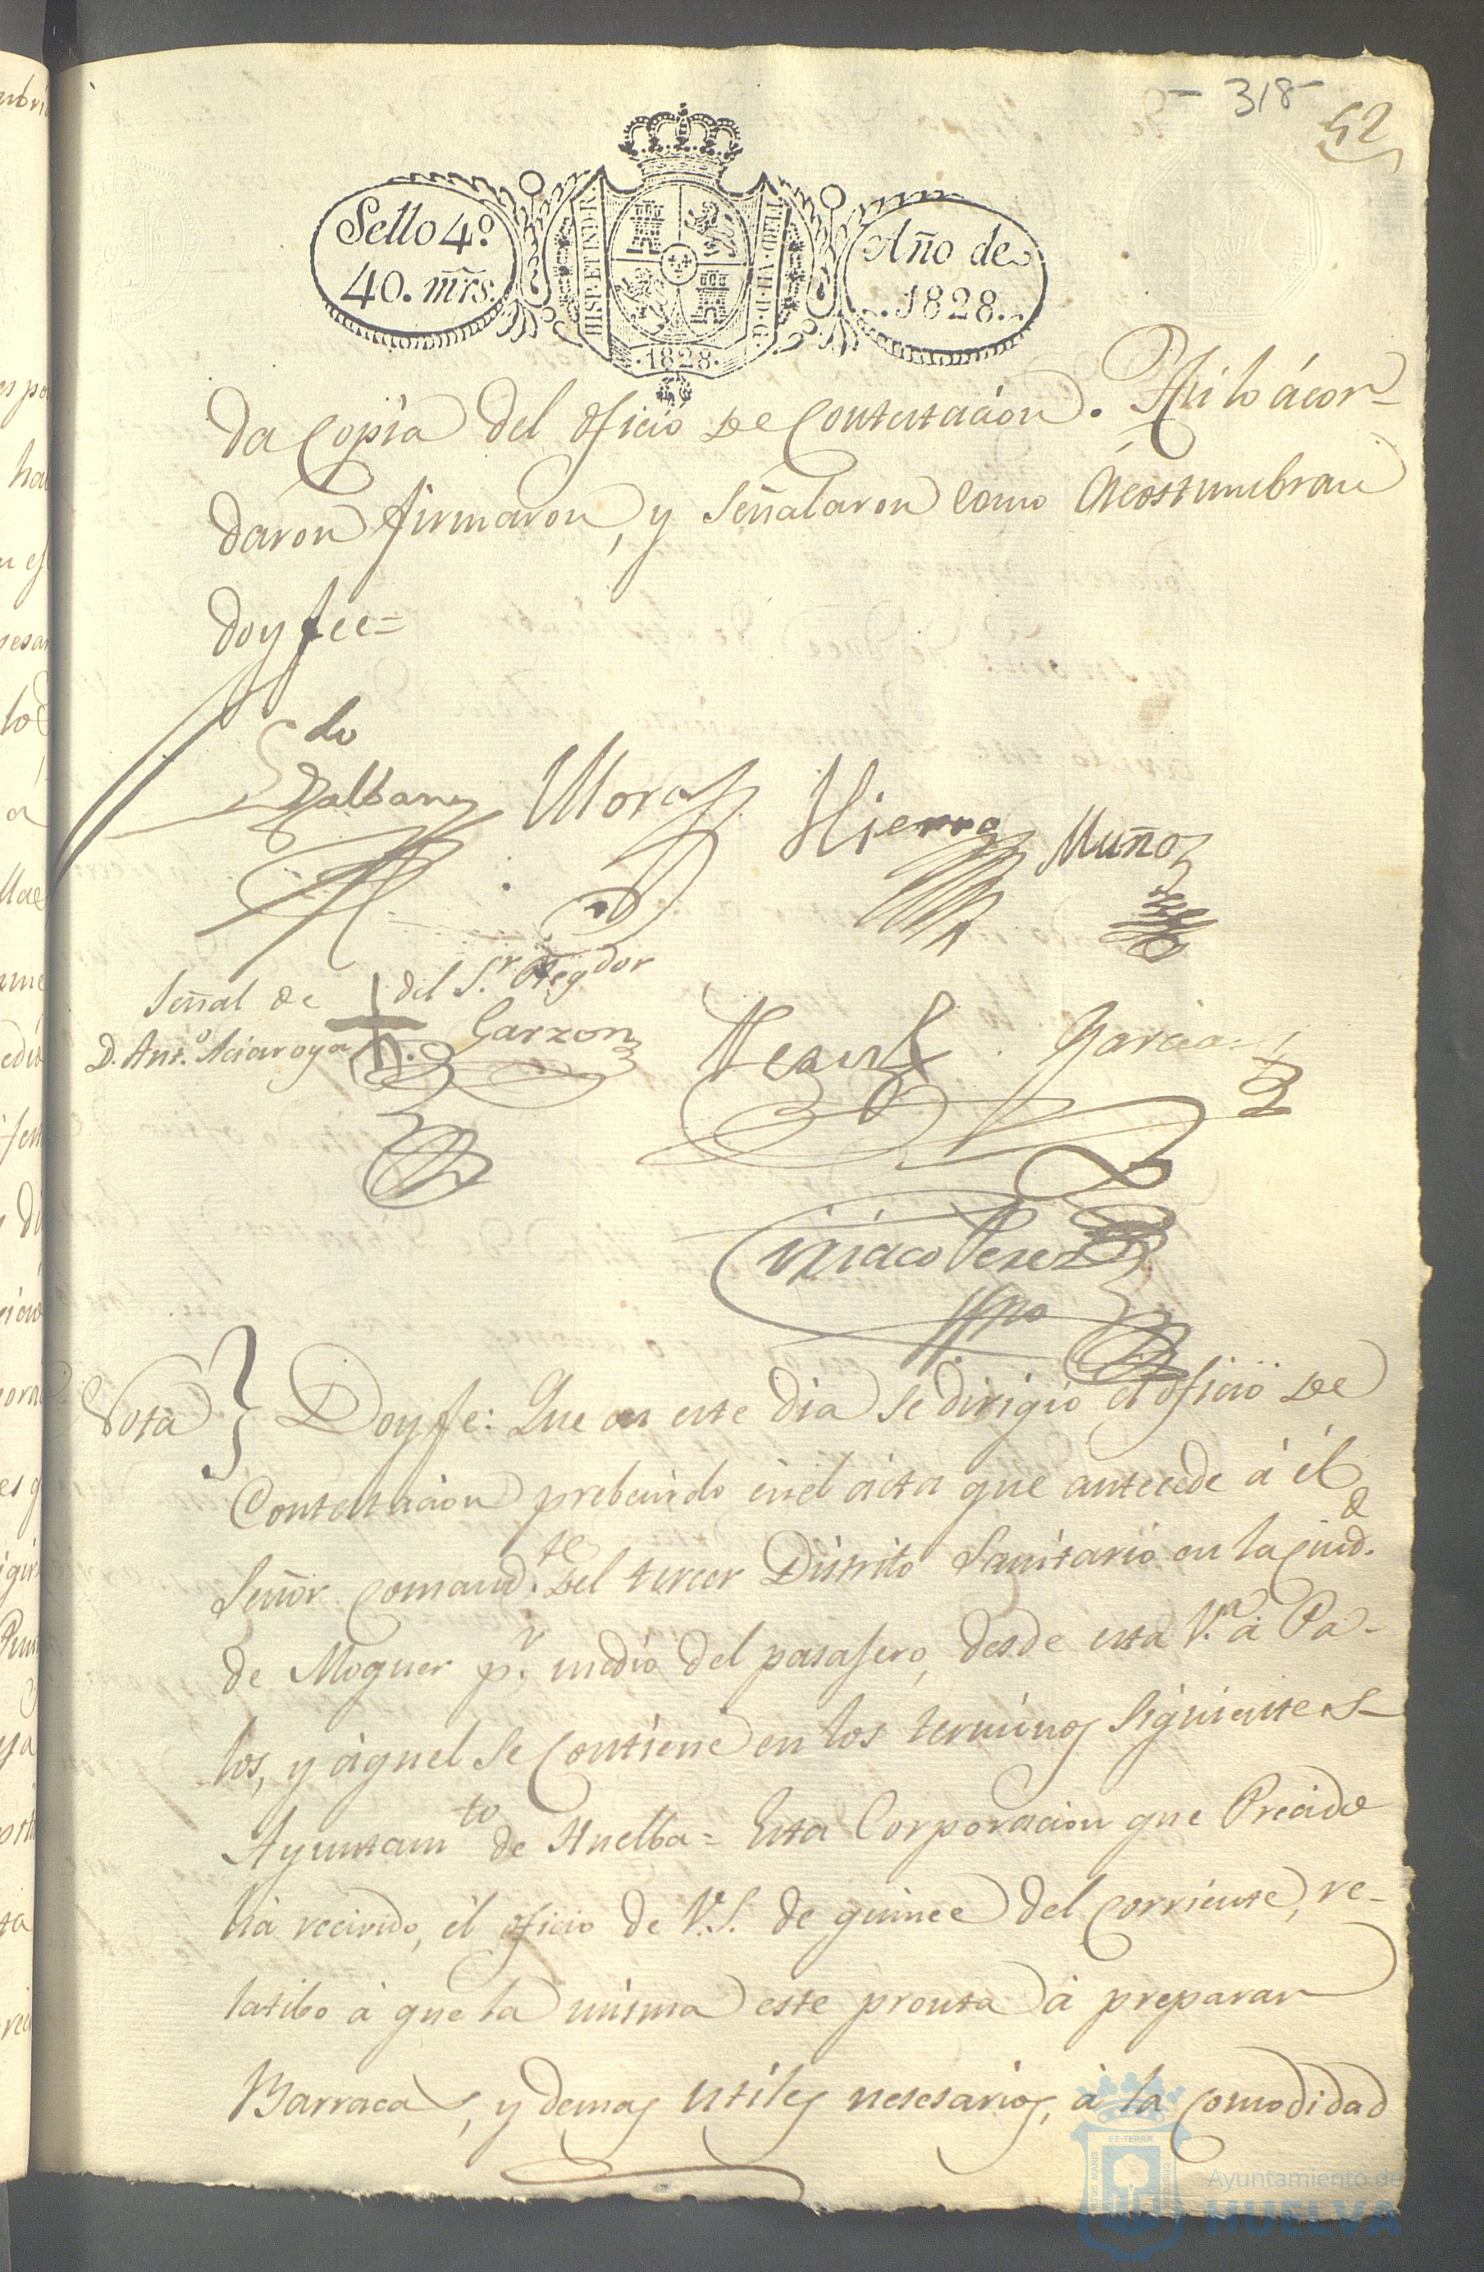 - 318 -
52
Sello 4º
40. mrs.
HISP. ET IND. R.
FERD. VII. D. G.
·1828·
Año de
1828.
da Copia del oficio de Contestacion. Asi lo ácor-
daron firmaron, y señalaron como Acostumbran
doy fee=
Ldo
Galban Mora Hierro Muñoz
Señal de + del Sr. Regdor
D. Ant.º
Garzon
Garcia
Ciriaco Perez
Ssno
Nota } Doy fe: Que en este dia se dirigió el oficio de
Contestacion prebenido en el acta que antecede á él
Señor Comand.te del tercer Distrito Sanitario en la Ciud.d
de Moguer p.r medio del pasajero, desde esta V.a á Pa-
los, y aquel se Contiene en los terminos siguientes
Ayuntam.to de Huelba= Esta Corporacion que Precido
há recivido, el oficio de V.S. de quince del corriente, re-
latibo à que la misma este pronta à preparar
Barraca, y demas utiles nesesarios, à la comodidad
ET TERRÆ
Ayuntamiento de
HUELVA